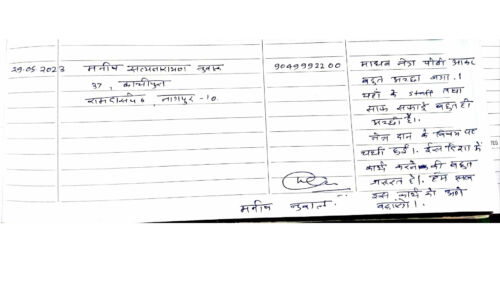 29-05-2023
मनीष सत्यनारायण नुवाल
37, काचीपुरा
रामदासपेठ, नागपुर -10.
9049992200
माधव नेत्र पीढी आकर
बहुत अच्छा लगा.।
यहाँ के staff तथा
साफ सफाई बहुत ही
अच्छी है।.
नेत्र दान के विषय पर
चर्चा हुई।. इस दिशा में
कार्य करने की बहुत
जरुरत है।. हम सब
इस कार्य को आगे
बढ़ायें।.
मनीष नुवाल.